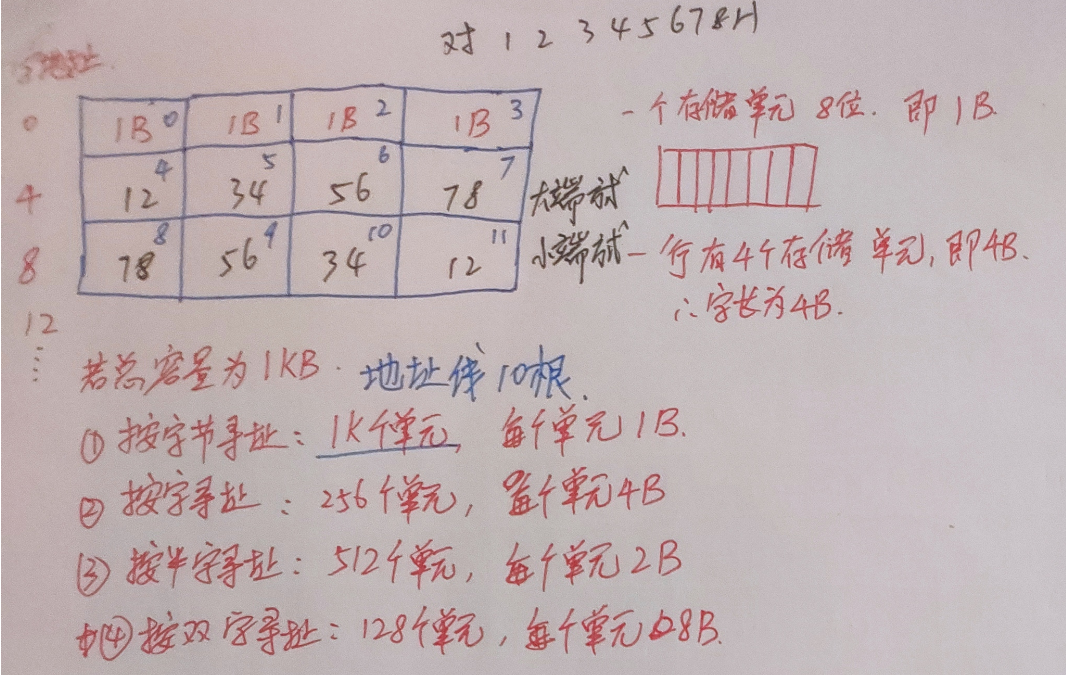 对12345678H
地址
0 1B 0 1B 1 1B 2 1B 3 一个存储单元 8位. 即1B.
4 12 4 34 5 56 6 78 7 大端
8 78 8 56 9 34 10 12 11 小端 一行有4个存储单元, 即4B.
12 ∴字长为4B.
若总容量为1KB. 地址线10根.
① 按字节寻址: 1K个单元, 每个单元1B.
② 按字寻址: 256个单元, 每个单元4B
③ 按半字寻址: 512个单元, 每个单元2B
④ 按双字寻址: 128个单元, 每个单元8B.